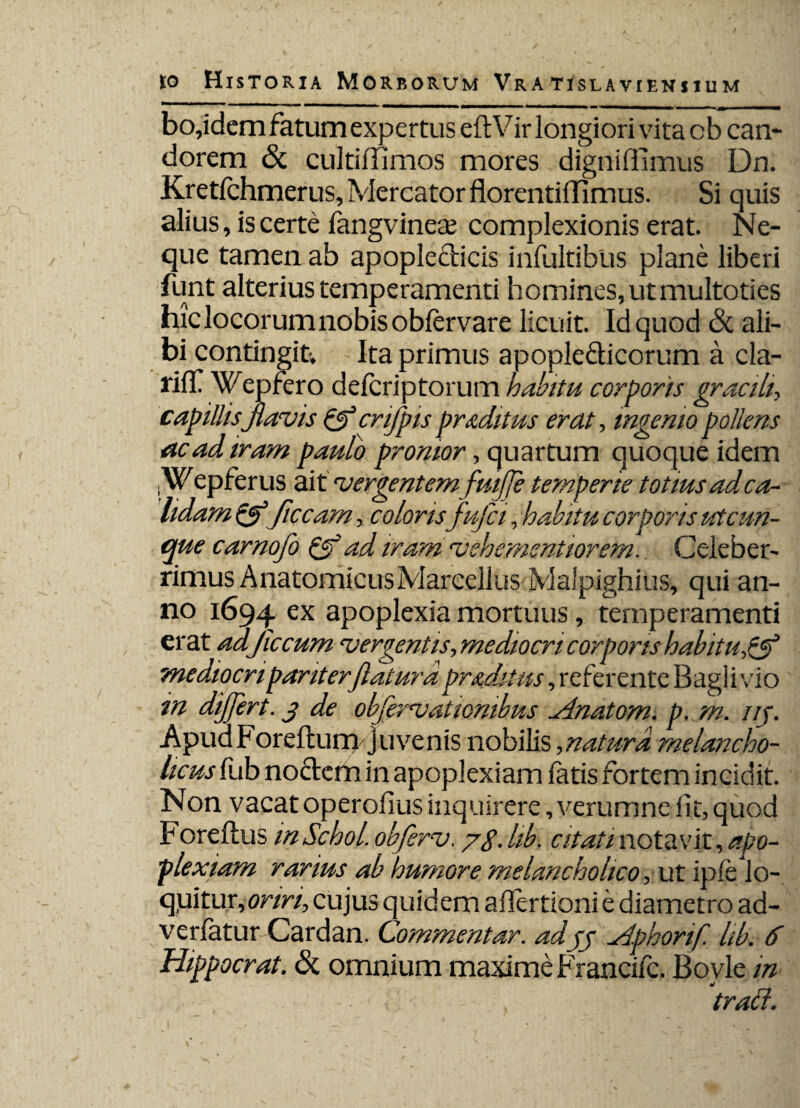 10 HISTORIA MORBORUM VRATISLAVIENSIUM
bo,idem fatum expertus eſt Vir longiori vita ob can-
dorem & cultiſſimos mores digniſſimus Dn.
Kretſchmerus, Mercator florentiſſimus. Si quis
alius, is certè ſangvineæ complexionis erat. Ne-
que tamen ab apoplecticis inſultibus planè liberi
ſunt alterius temperamenti homines, ut multoties
hîc locorum nobis obſervare licuit. Id quod & ali-
bi contingit. Ita primus apoplecticorum à cla-
riſſ. Wepfero deſcriptorum habitu corporis gracili,
capillis flavis & criſpis præditus erat, ingenio pollens
ac ad iram paulò pronior, quartum quoque idem
Wepferus ait vergentem fuiſſe temperie totius ad ca-
lidam & ſiccam, coloris fuſci, habitu corporis utcun-
que carnoſo & ad iram vehementiorem. Celeber-
rimus Anatomicus Marcellus Malpighius, qui an-
no 1694 ex apoplexia mortuus, temperamenti
erat ad ſiccum vergentis, mediocri corporis habitu, &
mediocri pariter ſtaturâ præditus, referente Baglivio
in diſſert. 3 de obſervationibus Anatom. p. m. 115.
Apud Foreſtum juvenis nobilis, naturâ melancho-
licus ſub noctem in apoplexiam ſatis fortem incidit.
Non vacat operoſius inquirere, verumne ſit, quod
Foreſtus in Schol. obſerv. 78. lib. citati notavit, apo-
plexiam rarius ab humore melancholico, ut ipſe lo-
quitur, oriri, cujus quidem aſſertioni è diametro ad-
verſatur Cardan. Commentar. ad 55 Aphoriſ. lib. 6
Hippocrat. & omnium maximè Franciſc. Boyle in
tract.